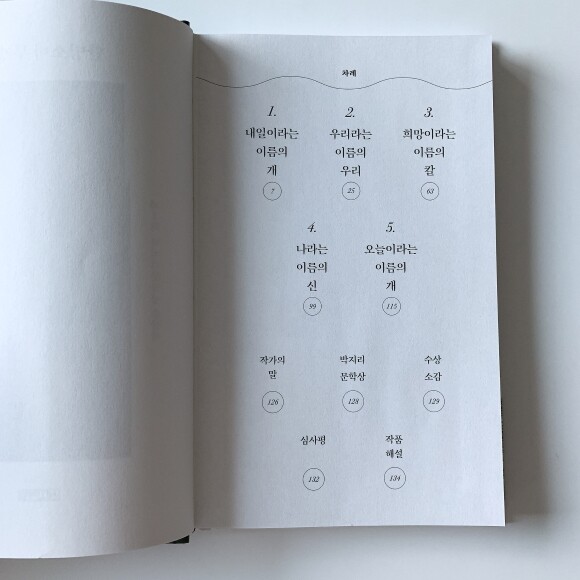 차례
1.
내일이라는
이름의
개
7
2.
우리라는
이름의
우리
25
3.
희망이라는
이름의
칼
63
4.
나라는
이름의
신
99
5.
오늘이라는
이름의
개
115
작가의
말
126
박지리
문학상
128
수상
소감
129
심사평
132
작품
해설
134